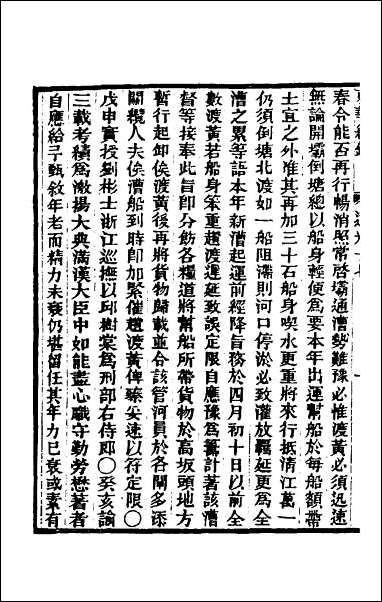 春令能否再行暢消照常啓壩通漕勢難豫必惟渡黃必須迅速
無論開壩倒塘總以船身輕便爲要本年出運幫船於每船額帶
土宜之外惟其再加三十石船身喫水更重將來行抵清江萬一
仍須倒塘北渡如一船阻滯則河口停淤必致灌放羈延更爲全
漕之累等語本年新漕起運前經降旨務於四月初十日以前全
數渡黃若船身笨重趲渡遲延致誤定限自應豫爲籌計著該漕
督等接奉此旨卽分飭各糧道將幫船所帶貨物於高坂頭地方
暫行起卸俟渡黃後再將貨物歸載並令該管河員於各閘多添
關纜人夫俟漕船到時卽加緊催趲渡黃俾臻妥速以符定限〇
戊申實授劉彬士浙江巡撫以邱樹棠爲刑部右侍郎〇癸亥諭
三載考績爲激揚大典滿漢大臣中如能盡心職守勤勞懋著者
自應給予甄敘年老而精力未衰仍堪留任其年力已衰或素有